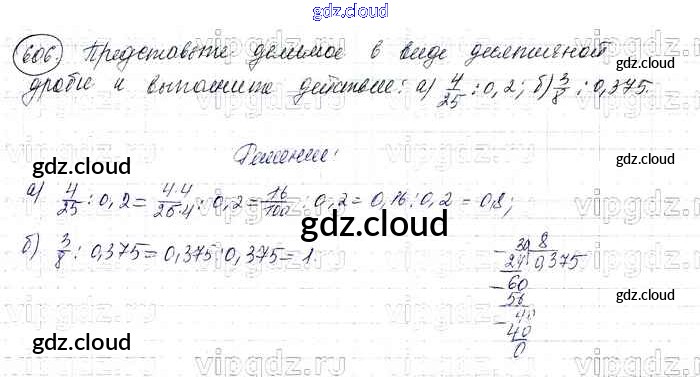 gdz.cloud
606. Представьте делимое в виде десятичной
дроби и выполните действие: а) 4/25 : 0,2; б) 3/8 : 0,375.
gdz.cloud
Решение:
gdz.cloud gdz.cloud
а) 4/25 : 0,2 = 4·4/25·4 : 0,2 = 16/100 : 0,2 = 0,16 : 0,2 = 0,8;
gdz.cloud
б) 3/8 : 0,375 = 0,375 : 0,375 = 1.
30 | 8
- 24 | 0,375
- 60
56
gdz.cloud
- 40
40
0
gdz.cloud gdz.cloud
vipgdz.com vipgdz.com vipgdz.com